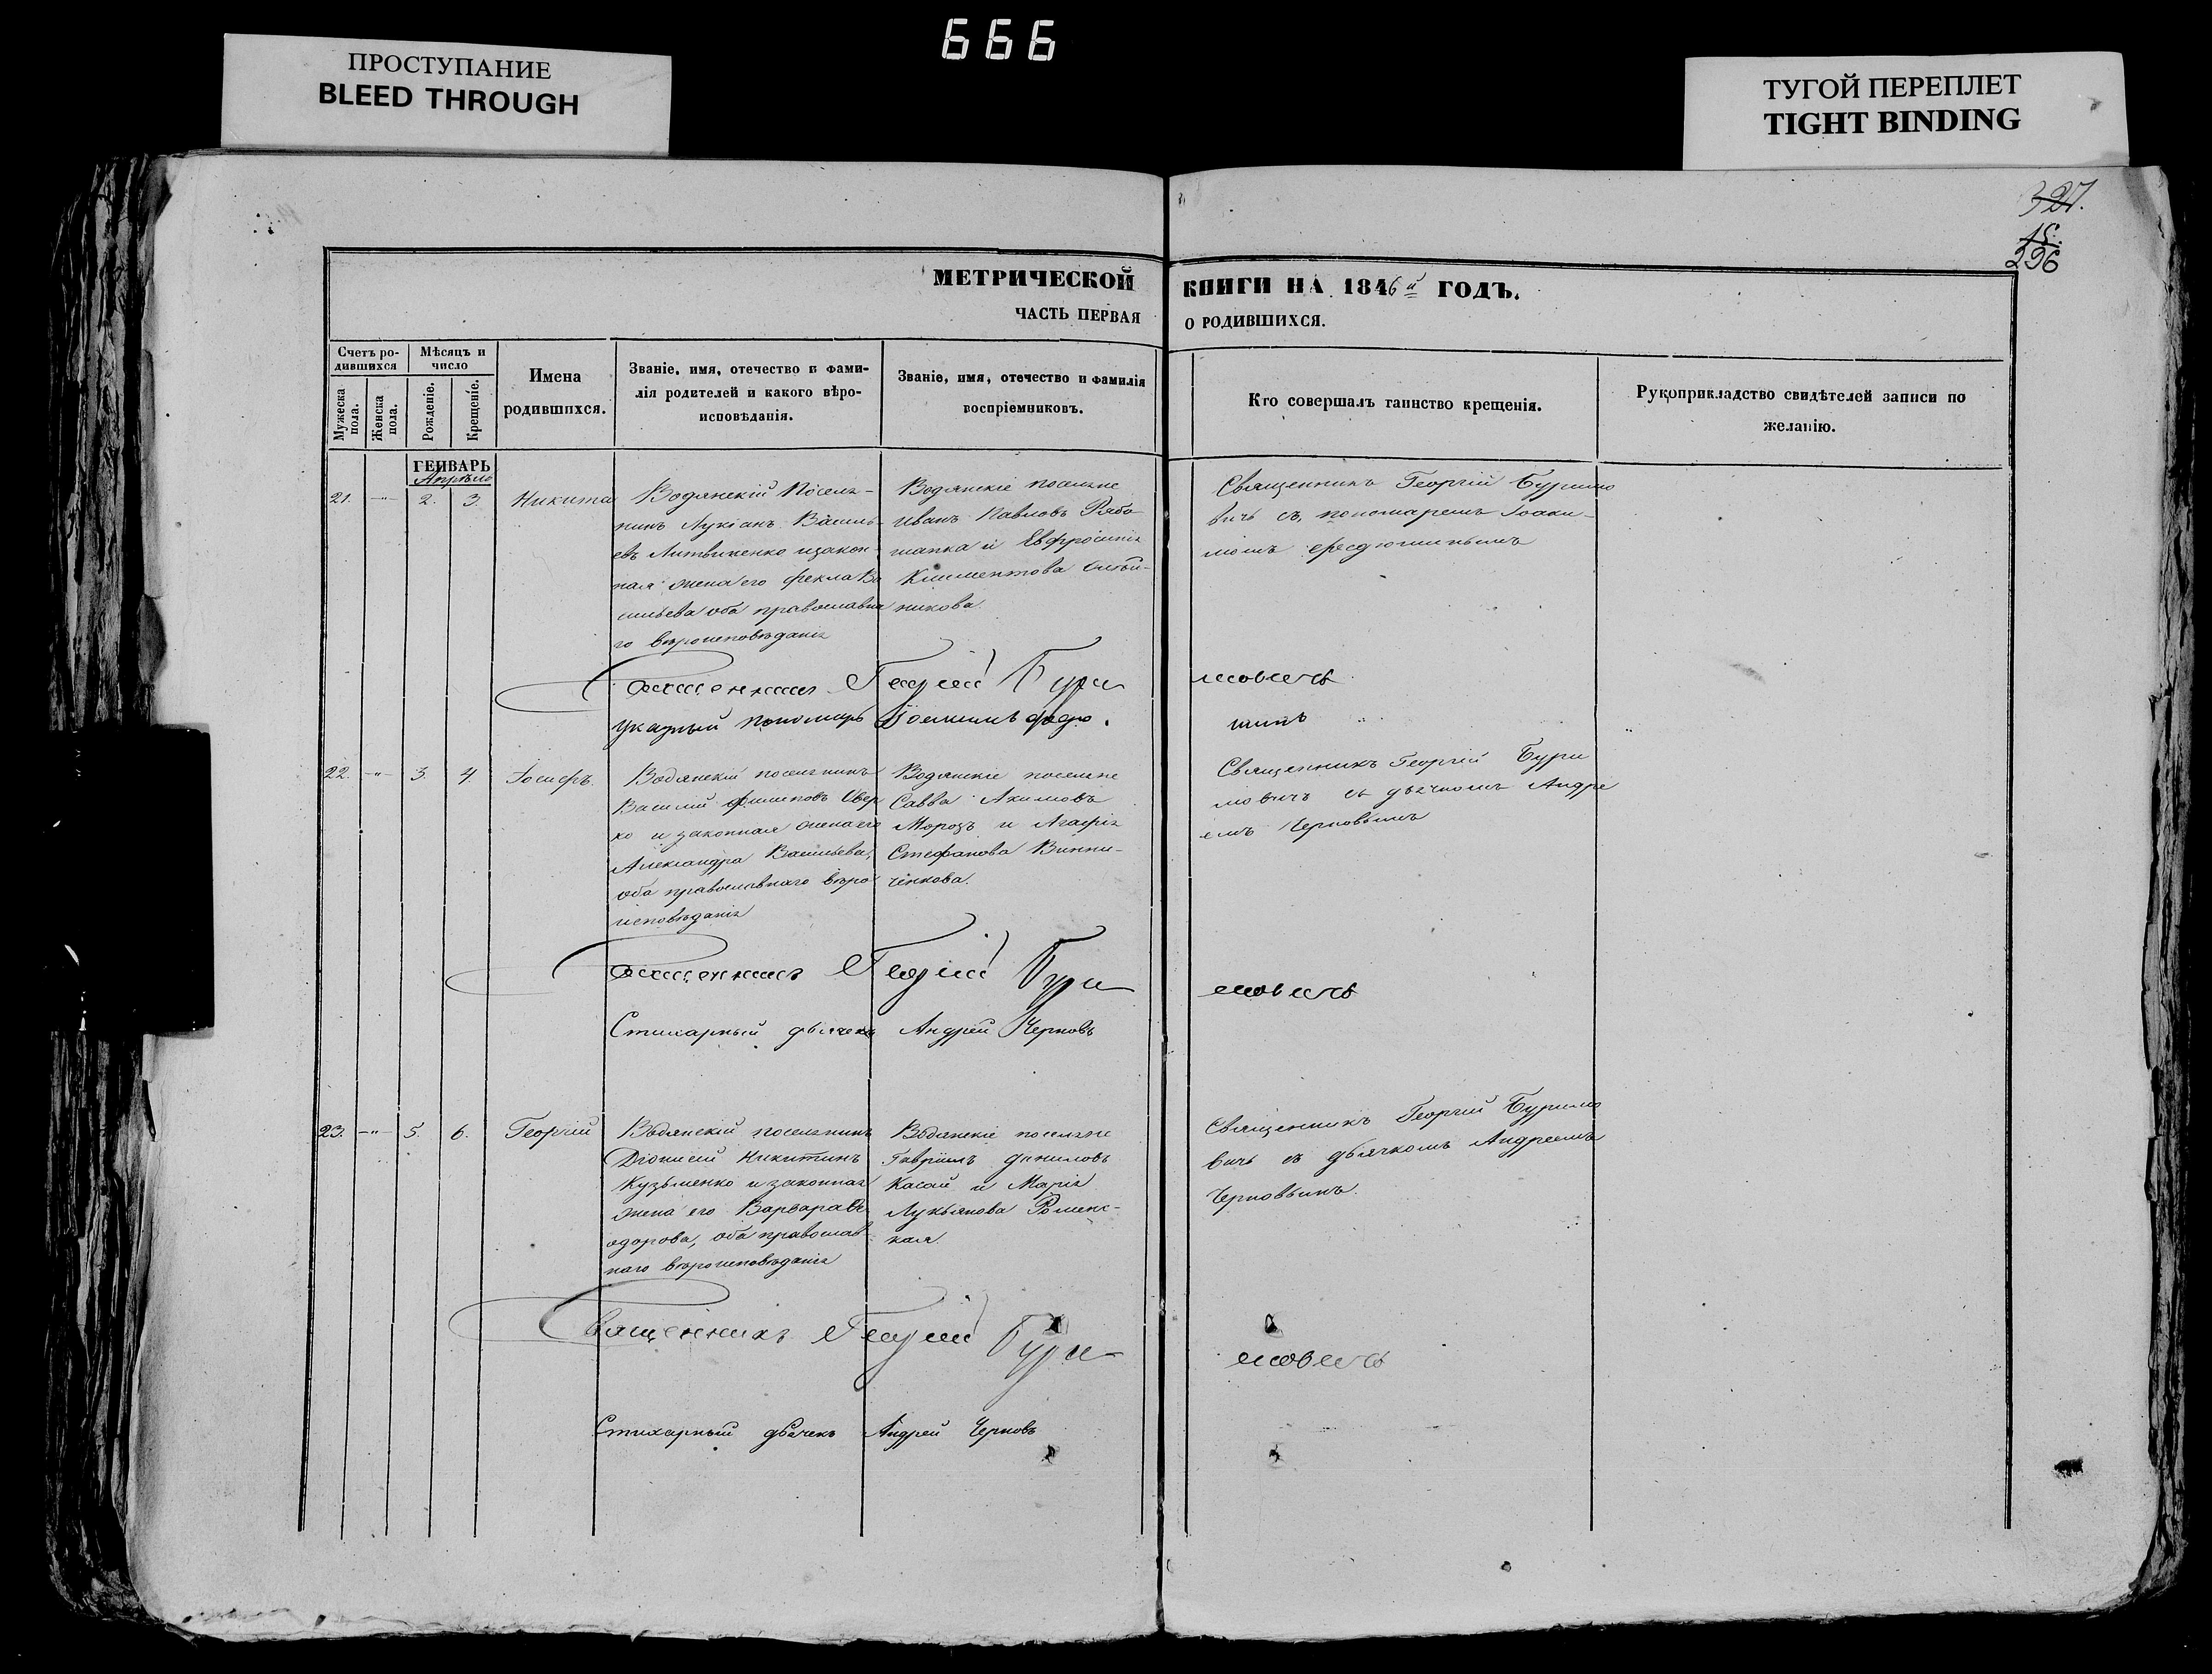 666
ПРОСТУПАНИЕ
BLEED THROUGH
ТУГОЙ ПЕРЕПЛЕТ
TIGHT BINDING
327.
15.
296
МЕТРИЧЕСКОЙ КНИГИ НА 1846й ГОДЪ.
ЧАСТЬ ПЕРВАЯ О РОДИВШИХСЯ.
Счетъ ро-
дившихся
Мужеска пола.
Женска пола.
Мѣсяцъ и
число
Рожденіе.
Крещеніе.
Имена
родившихся.
Званіе, имя, отечество и фами-
лія родителей и какого вѣро-
исповѣданія.
Званіе, имя, отечество и фамилія
воспріемниковъ.
Кто совершалъ таинство крещенія.
Рукоприкладство свидѣтелей записи по
желанію.
ГЕНВАРЬ
Апрѣль
21. -"- 2. 3. Никита
Водянскій Поселя-
нинъ Лукіанъ Василь-
евъ Литвиненко и закон-
ная жена его Фекла Ва
сильева оба православна
го вѣроисповѣданія
Водянскіе поселяне
Иванъ Павловъ Рябо
шапка и Евфросинія
Климентова
никова.
Священникъ Георгій Буримо
вичь съ пономаремъ Іоаки-
момъ
Священникъ Георгій Буримовичь
Указный пономарь
шинъ
22. -"- 3. 4. Іосифъ.
Водянскій поселянинъ
Василій Филиповъ Свер
ко и законная жена его
Александра Васильева,
оба православнаго вѣро
исповѣданія
Водянскіе поселяне
Савва Акимовъ
Морозъ и Агафія
Стефанова Винни-
ченкова.
Священникъ Георгій Бури
мовичъ съ дьячкомъ Андре
емъ Черновымъ
Священникъ Георгій Буримовичь
Стихарный дьячекъ Андрей Черновъ
23. -"- 5. 6. Георгій
Водянскій поселянинъ
Діонисій Никитинъ
Кузьменко и законная
жена его Варвара Ѳе
одорова, оба православ-
наго вѣроисповѣданія
Водянскіе поселяне
Гавріилъ Даниловъ
Касай и Марія
Лукьянова Роменс-
кая.
Священникъ Георгій Буримо
вичь съ дьячкомъ Андреемъ
Черновымъ.
Священникъ Георгій Буримовичь
Стихарный дьячекъ Андрей Черновъ